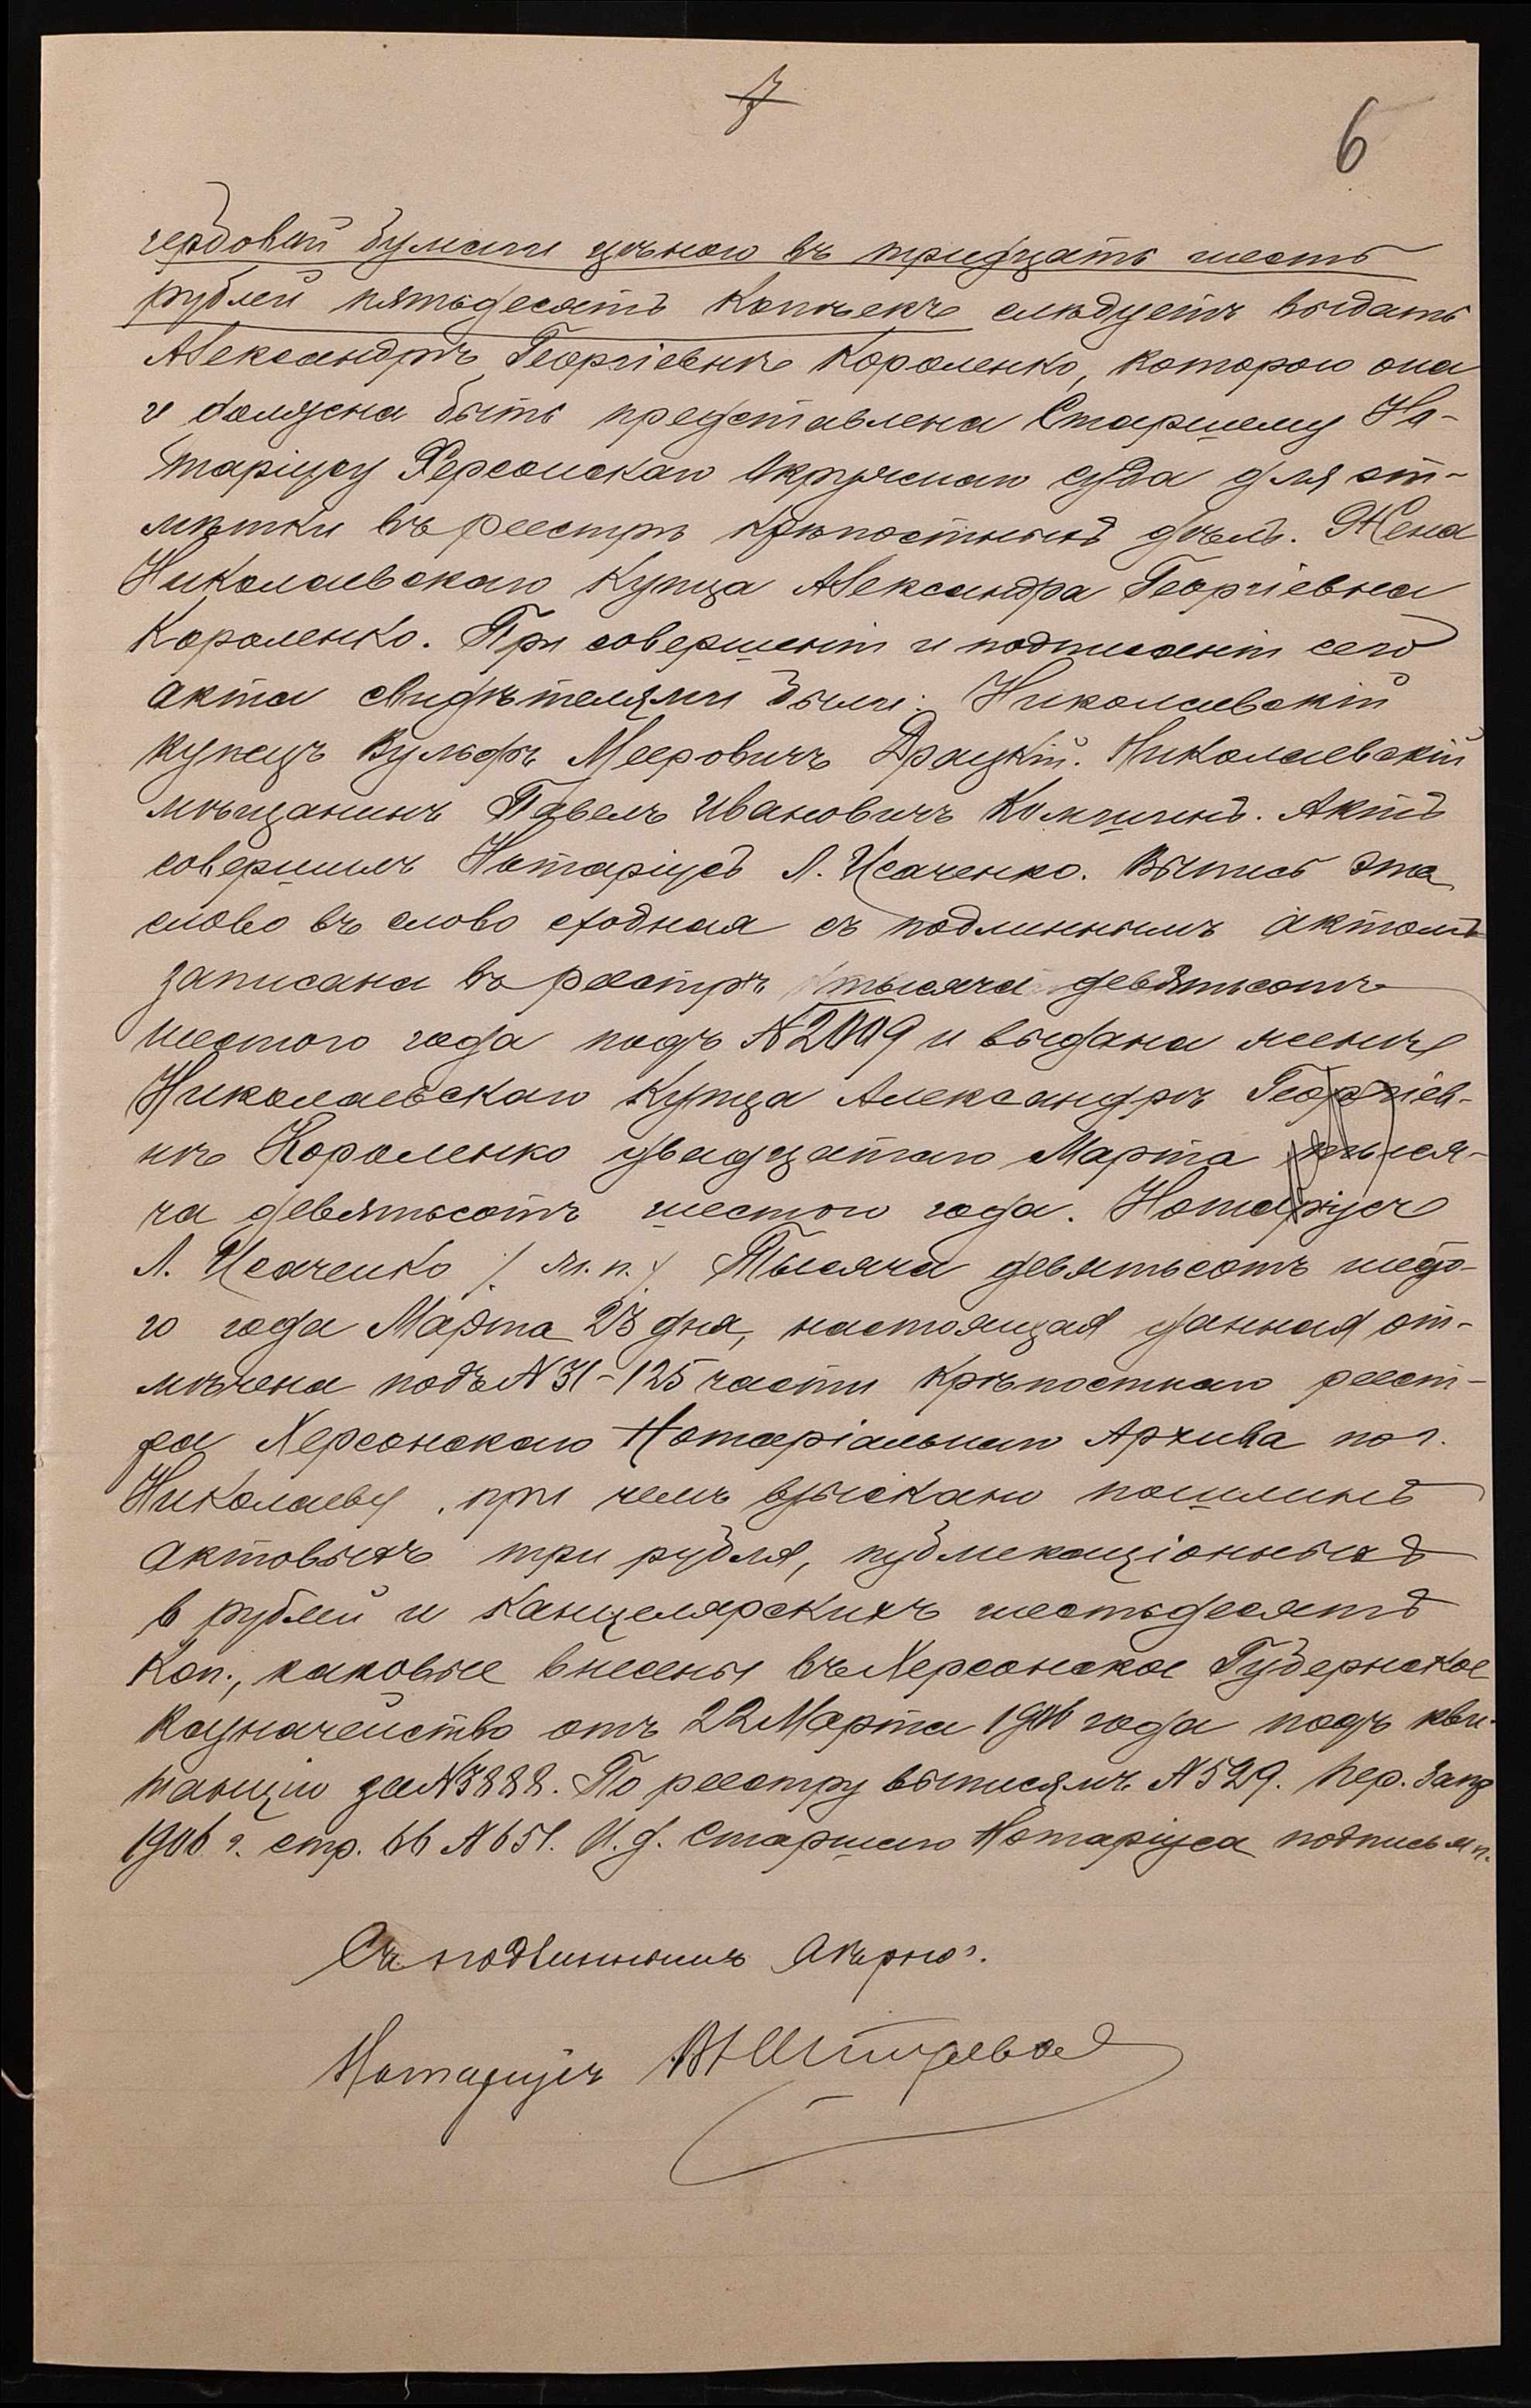 7
6
гербовой бумаги цѣною въ тридцать шесть
рублей пятьдесятъ копѣекъ слѣдуетъ выдать
Александрѣ Георгіевнѣ Короленко, которою она
и должна быть представлена Старшему Но-
таріусу Херсонскаго Окружнаго суда для от-
мѣтки въ реестрѣ крѣпостныхъ дѣлъ. Жена
Николаевскаго купца Александра Георгіевна
Короленко. При совершеніи и подписаніи сего
акта свидѣтелями были: Николаевскій
купецъ Вульфъ Мееровичъ Драцкій. Николаевскій
мѣщанинъ Павелъ Ивановичъ Актъ
совершилъ Нотаріусъ Л. Исаченко. Выпись эта
слово въ слово сходная съ подлиннымъ актомъ
записана въ реестрѣ тысяча девятьсотъ
шестого года подъ № 2009 и выдана женѣ
Николаевскаго купца Александрѣ Георгіев-
нѣ Короленко двадцатаго Марта тыся-
ча девятьсотъ шестого года. Нотаріусъ
Л. Исаченко / м.п. / Тысяча девятьсотъ шесто-
го года Марта 23 дня, настоящая данная от-
мѣчена подъ № 31-125 части крѣпостнаго реест-
ра Херсонскаго Нотаріальнаго Архива по г.
Николаеву, при чемъ взыскано пошлинъ
актовыхъ три рубля, публикаціонныхъ
рублей и канцелярскихъ шестьдесятъ
коп., каковые внесены въ Херсонское Губернское
Казначейство отъ 22 Марта 1906 года подъ кви-
танцію за № 3888. По реестру выписямъ № 529. Пер. Запр
1906 г. стр. 66 № 651. И. д. Старшаго Нотаріуса подпись м п.
Съ подлиннымъ вѣрно.
Нотаріусъ